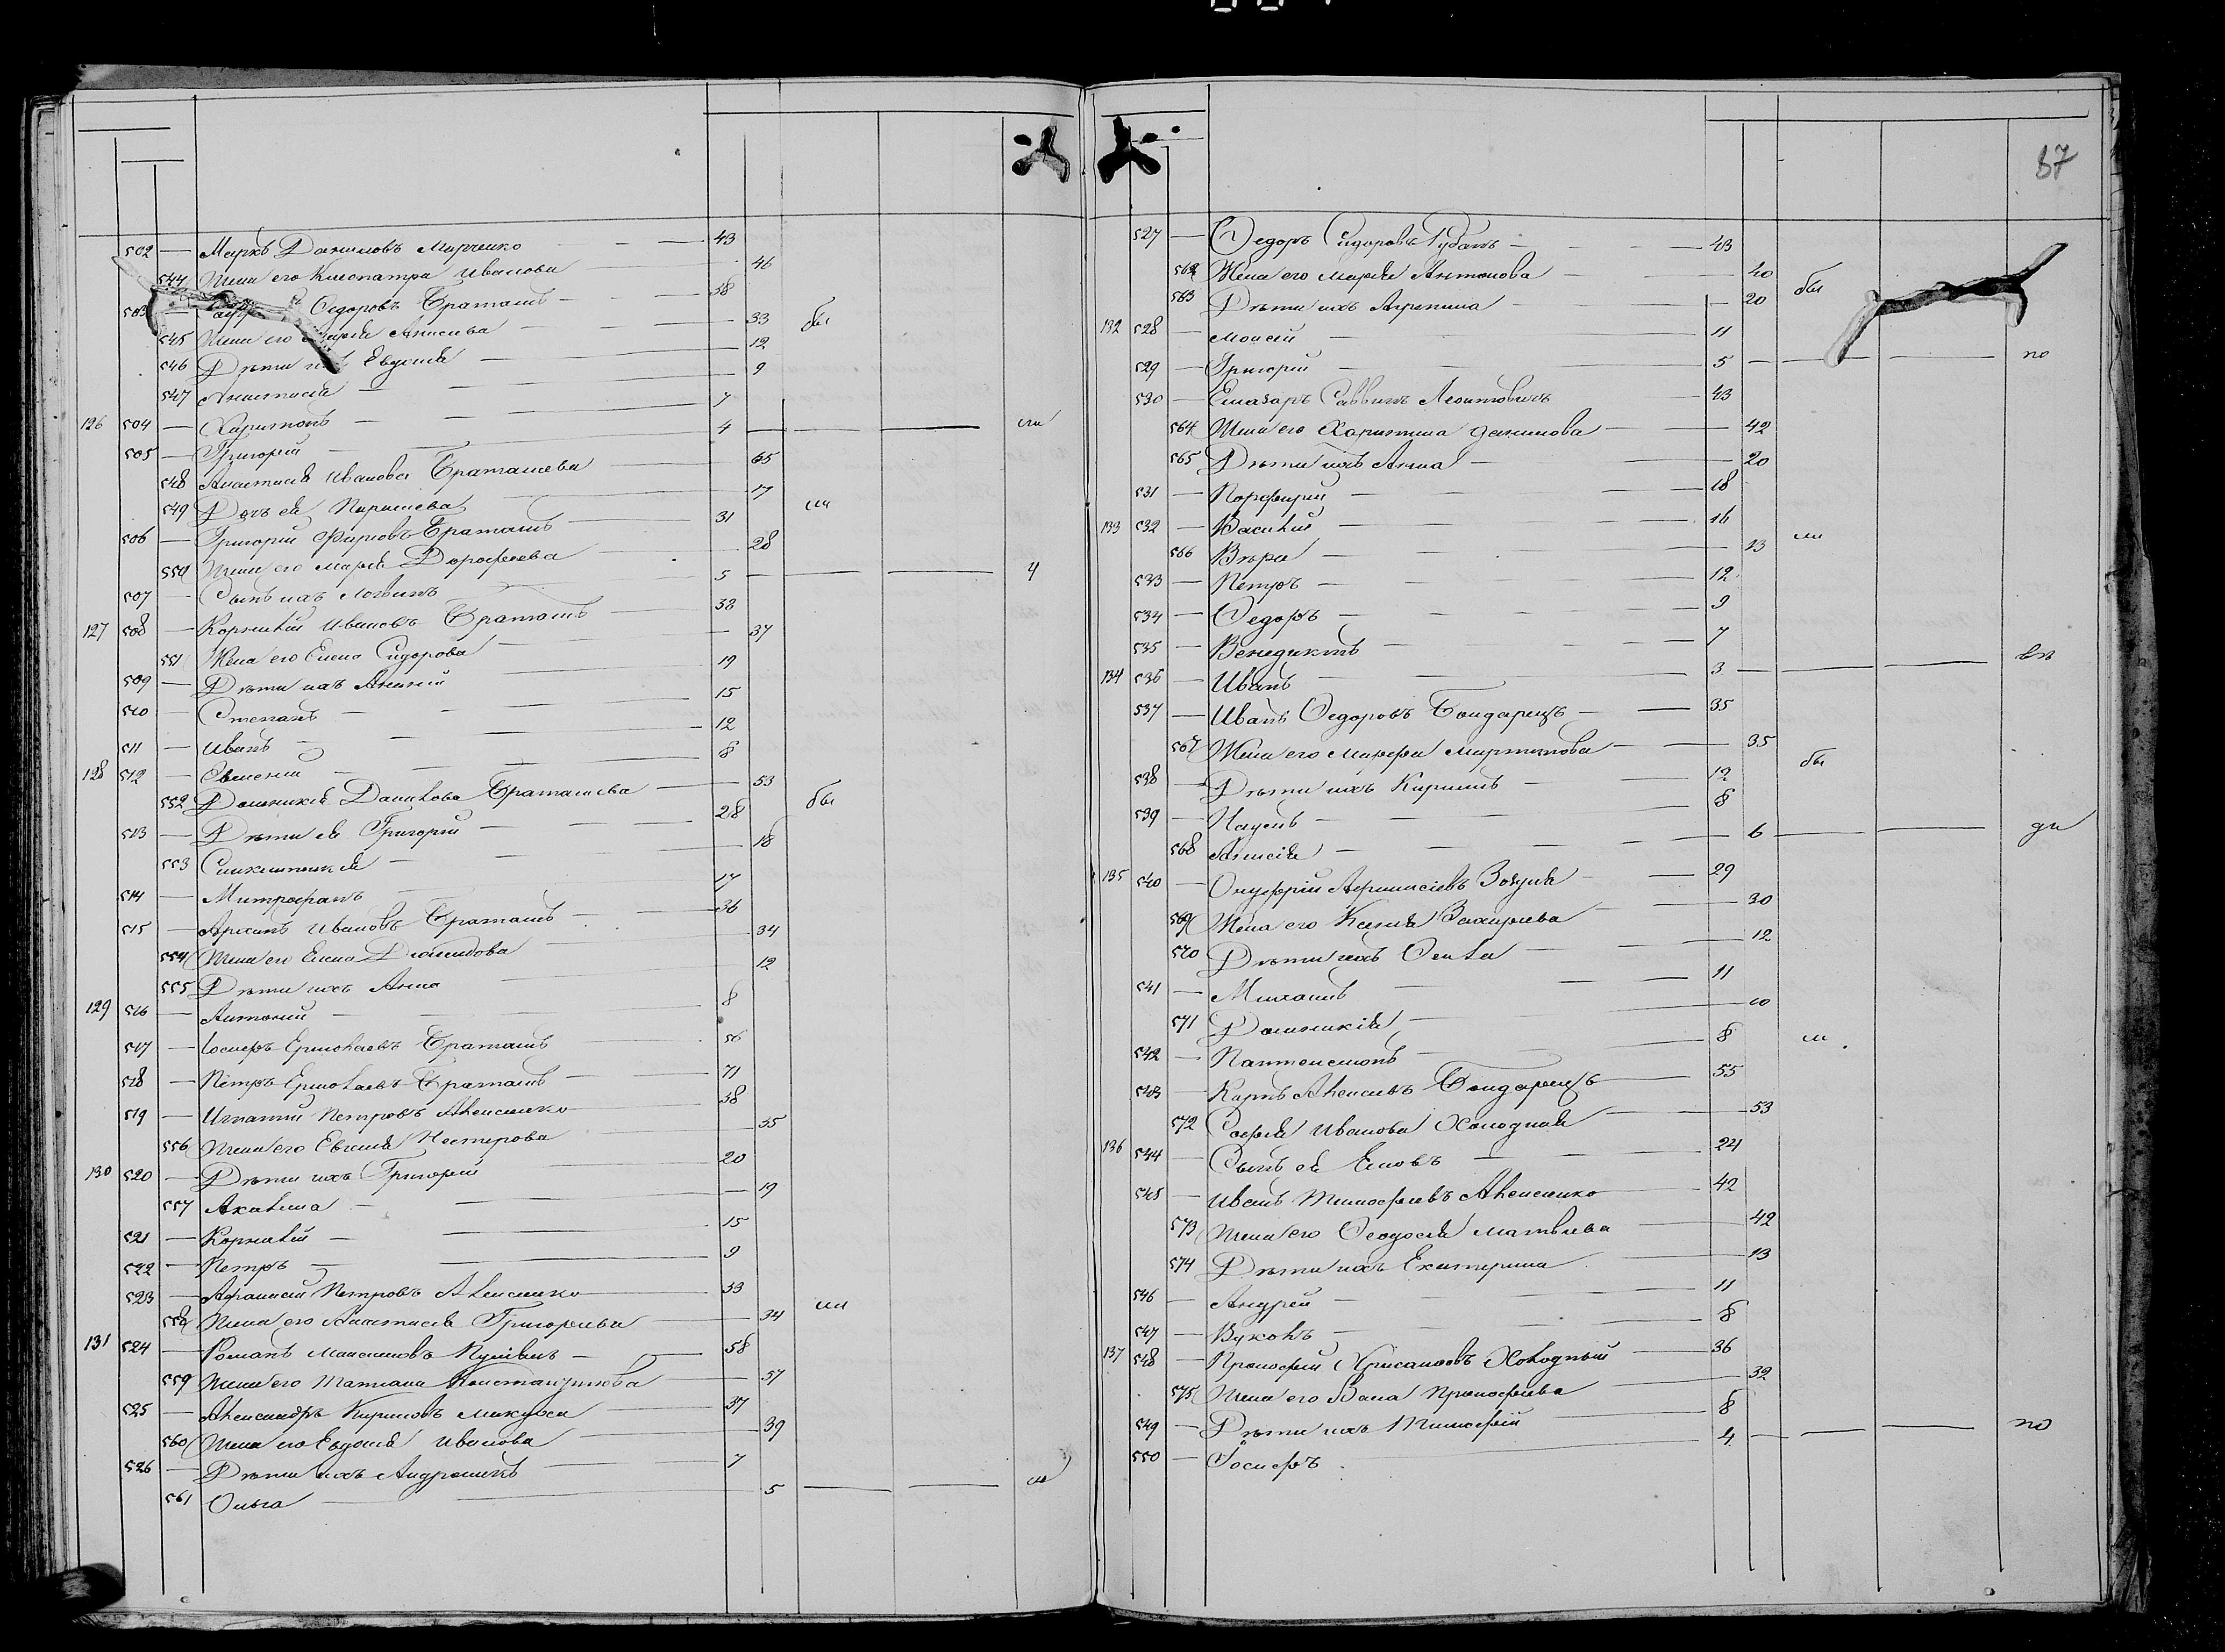 87
502 — Маркъ Даниловъ Марченко — 43
544 Жена его Клеопатра Иванова 46
503 — Федоровъ Браташъ — 38
545 Жена его Марія Алексѣева — 33 бы
546 Дѣти ихъ Евдокія — 12
547 Анастасія — 9
126 504 — Харитонъ — 7
505 — Григорій — 4 — — —
548 Анастасія Иванова Браташева — 65
549 Дочь ея Параскева 17
506 — Григорій Фирсовъ Браташъ — 31
550 Жена его Марія Дорофеева — 28
507 — Сынъ ихъ Логвинъ 5 — — — ч
127 508 — Корнилій Ивановъ Браташъ — 38
551 Жена его Елена Сидорова — 37
509 — Дѣти ихъ Ананій 19
510 — Степанъ — 15
511 — Иванъ — 12
128 512 — Евгеній — 8
552 Домникія Данилова Браташева — 53
513 — Дѣти ея Григорій — 28 бы
553 Синклитикія — 18
514 — Митрофанъ 17
515 — Архипъ Ивановъ Браташъ — 36
554 Жена его Елена Діомидова 34
555 Дѣти ихъ Анна 12
129 516 — Антоній — 8
517 — Іосифъ Ермолаевъ Браташъ 56
518 — Петръ Ермолаевъ Браташъ — 71
519 — Игнатій Петровъ Алексѣенко — 38
556 Жена его Евгенія Нестерова 35
130 520 — Дѣти ихъ Григорій 20
557 Акилина — 19
521 — Корнилій — 15
522 — Петръ — 9
523 — Афанасій Петровъ Алексѣенко — 33
558 Жена его Анастасія Григорьева — 34
131 524 — Романъ Максимовъ — 58
559 Жена его Татіана Константинова — 57
525 — Александръ Кириловъ Микула — 37
560 Жена его Евдокія Иванова — 39
526 — Дѣти ихъ Андроникъ 7
561 Ольга — 5 — — —
527 — Федоръ Сидоровъ Губань — 43
562 Жена его Марія Антонова — 40
563 Дѣти ихъ Агрепина — 20 бы
132 528 — Моисей — 11
529 — Григорій — 5 — — — по
530 — Елеазаръ Саввинъ Леонтовичъ 43
564 Жена его Харитина Данилова — 42
565 Дѣти ихъ Анна — 20
531 — Порфирій — 18
133 532 — Василій — 16
566 Вѣра — 13
533 — Петръ — 12
534 — Федоръ — 9
535 — Венедиктъ — 7
134 536 — Иванъ — 3 — — — въ
537 — Иванъ Федоровъ Бондарецъ — 35
567 Жена его Марфа Мартынова — 35
538 — Дѣти ихъ Кирилъ — 12 бы
539 — Наумъ — 8
568 Анисія — 6 — — — ди
135 540 — Онуфрій Афанасіевъ Зозуля — 29
569 Жена его Ксенія Захарьева — 30
570 Дѣти ихъ Фекла — 12
541 — Михаилъ 11
571 Домникія — 10
542 — Пантелеимонъ 8
543 — Карпъ Алексѣевъ Бондарецъ — 55
572 Софія Иванова Холодная — 53
136 544 — Сынъ ея 24
545 — Иванъ Тимофеевъ Алексѣенко — 42
573 Жена его Феодосія Матвѣева — 42
574 Дѣти ихъ Екатерина — 13
546 — Андрей — 11
547 — Вуколъ — 8
137 548 — Прокофій Хрисанфовъ Холодный — 36
575 Жена его Васса Прокофьева 32
549 — Дѣти ихъ Тимофей — 8
550 — Іосифъ 4 — — — по